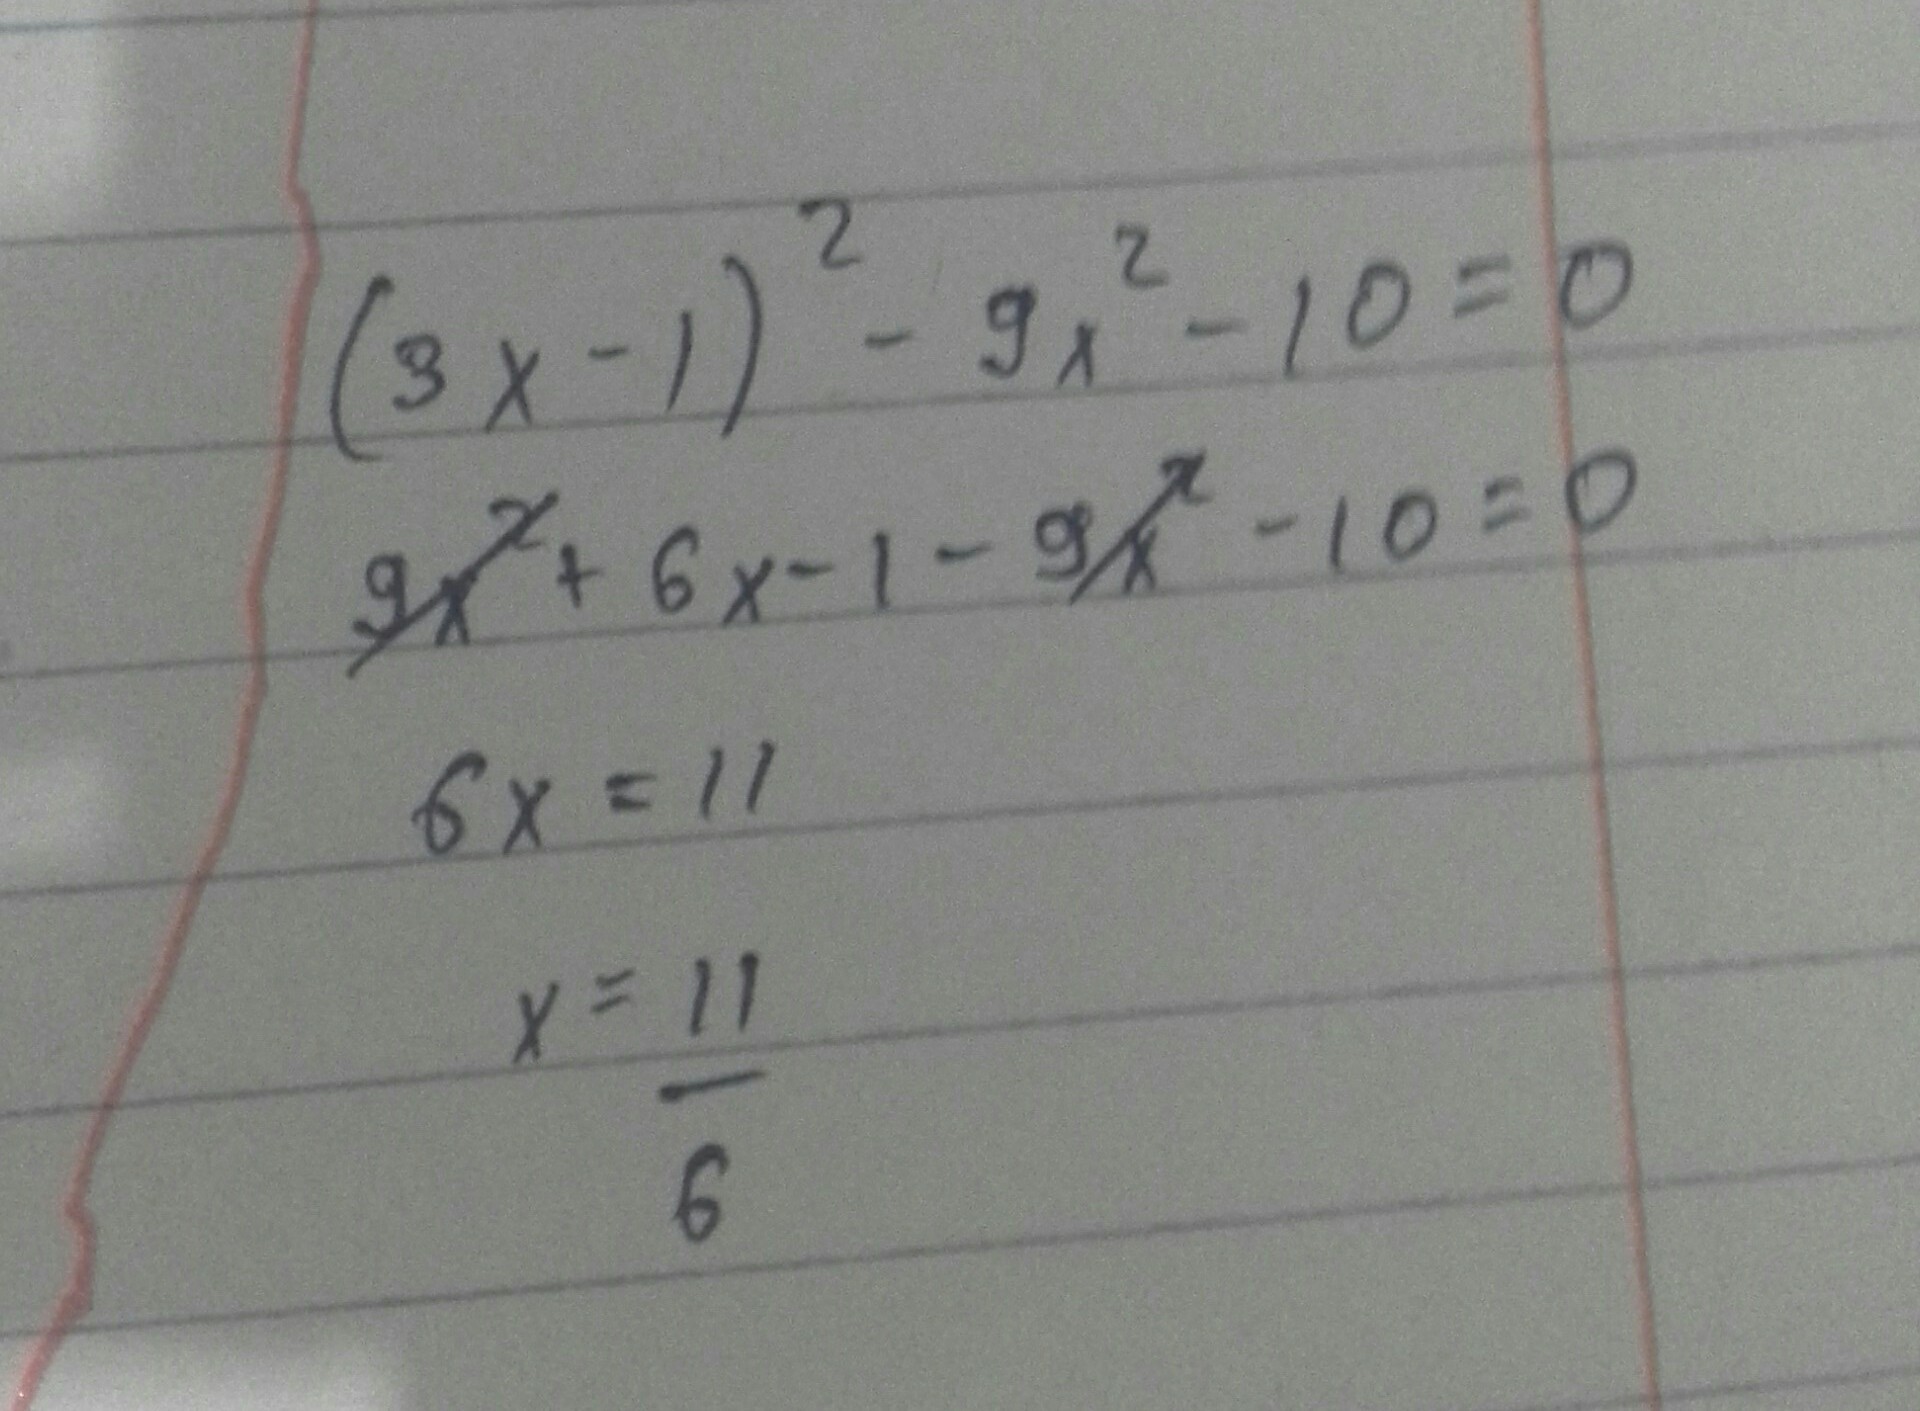 (3x-1)² - 9x² - 10 = 0
9x² + 6x - 1 - 9x² - 10 = 0
6x = 11
x = 11
6